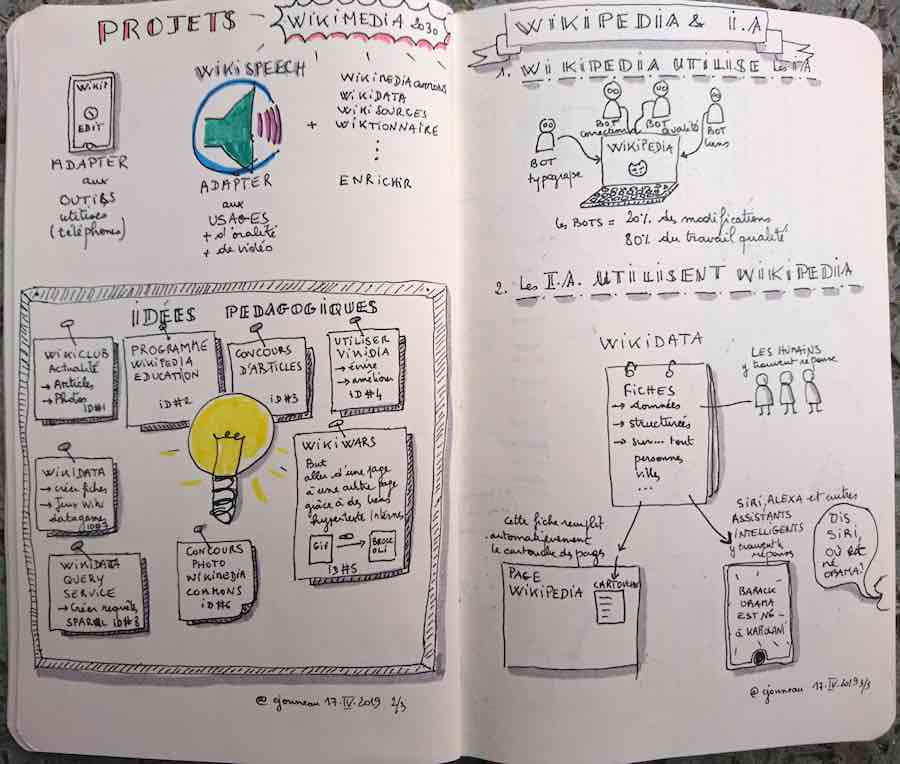 PROJETS - WIKIMEDIA 2030
WIKIP
EDIT
ADAPTER
aux
OUTILS
utilisés
(téléphones)
WIKISPEECH
ADAPTER
aux
USAGES
+ d'oralité
+ de vidéo
+
WIKIMEDIA COMMONS
WIKIDATA
WIKISOURCES
WIKTIONNAIRE
ENRICHIR
IDÉES PEDAGOGIQUES
WIKICLUB
Actualité
→ Articles
→ Photos
ID#1
PROGRAMME
WIKIPEDIA
EDUCATION
ID#2
CONCOURS
D'ARTICLES
ID#3
UTILISER
VIKIDIA
→ écrire
→ améliorer
ID#4
WIKIDATA
→ créer fiches
→ Jeux Wiki
datagame
WIKIWARS
But
aller d'une page
à une autre page
grâce à des liens
hypertexte Internes
GIF → BROCOLI
ID#5
WIKIDATA
QUERY
SERVICE
→ Créer requêts
SPARQL ID#8
CONCOURS
PHOTO
WIKIMEDIA
COMMONS
ID#6
@ cjouneau 17.IV.2019 2/3
WIKIPEDIA & I.A
1. WIKIPEDIA UTILISE les IA
BOT
typograpе
BOT
correction
BOT
qualité
BOT
liens
WIKIPEDIA
les BOTS = 20% des modifications
80% du travail qualité
2. Les I.A. UTILISENT WIKIPEDIA
WIKIDATA
FICHES
→ données
→ structurées
→ sur... tout
personnes
villes
...
LES HUMAINS
y trouvent réponse
cette fiche remplit
automatiquement
le cartouche des pages
PAGE
WIKIPEDIA
CARTOUCHE
SIRI, ALEXA et autres
ASSISTANTS
INTELLIGENTS
y trouvent
réponses
DIS
SIRI,
OÙ EST
NÉ
OBAMA?
BARACK
OBAMA
EST NÉ
à KAPIOLANI
@ cjouneau 17.IV.2019 3/3